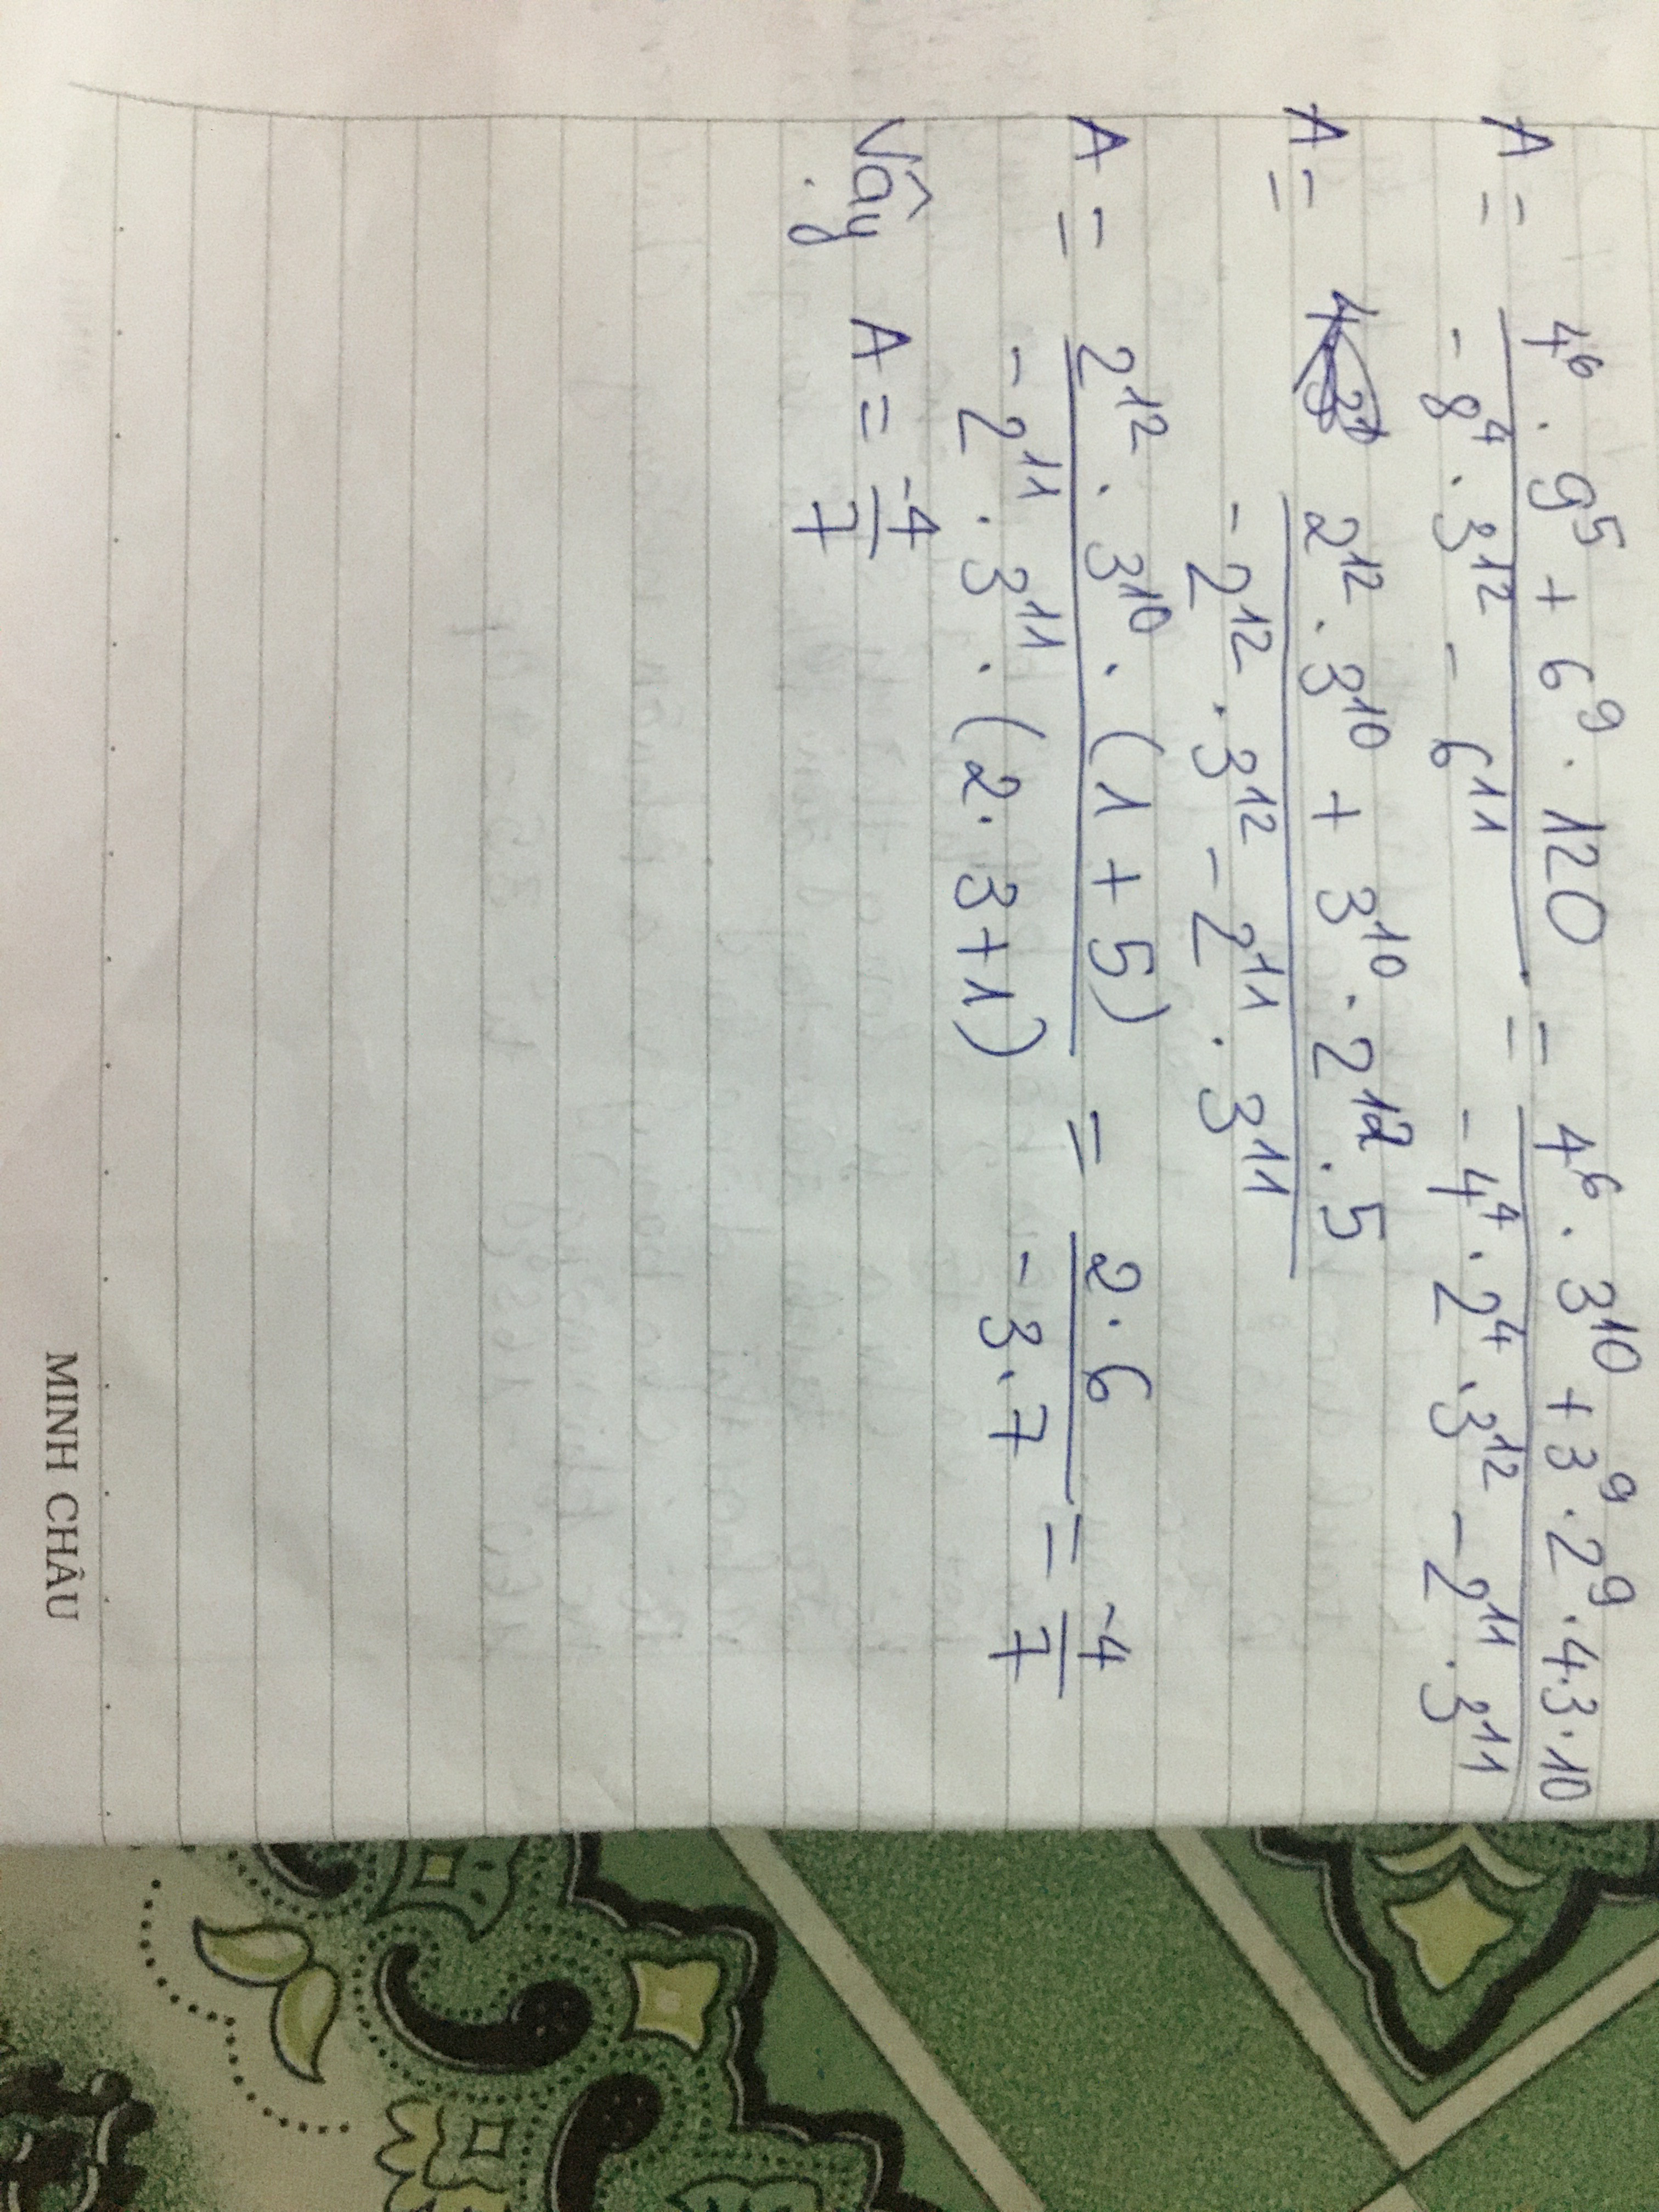 A = \frac{4^6 . 9^5 + 6^9 . 120}{-8^4 . 3^{12} - 6^{11}} = \frac{4^6 . 3^{10} + 3^9 . 2^9 . 4.3.10}{-4^4 . 2^4 . 3^{12} - 2^{11} . 3^{11}}
A = \frac{2^{12} . 3^{10} + 3^{10} . 2^{12} . 5}{-2^{12} . 3^{12} - 2^{11} . 3^{11}}
A = \frac{2^{12} . 3^{10} . (1 + 5)}{-2^{11} . 3^{11} . (2 . 3 + 1)} = \frac{2 . 6}{-3 . 7} = \frac{-4}{7}
Vậy A = \frac{-4}{7}
MINH CHÂU